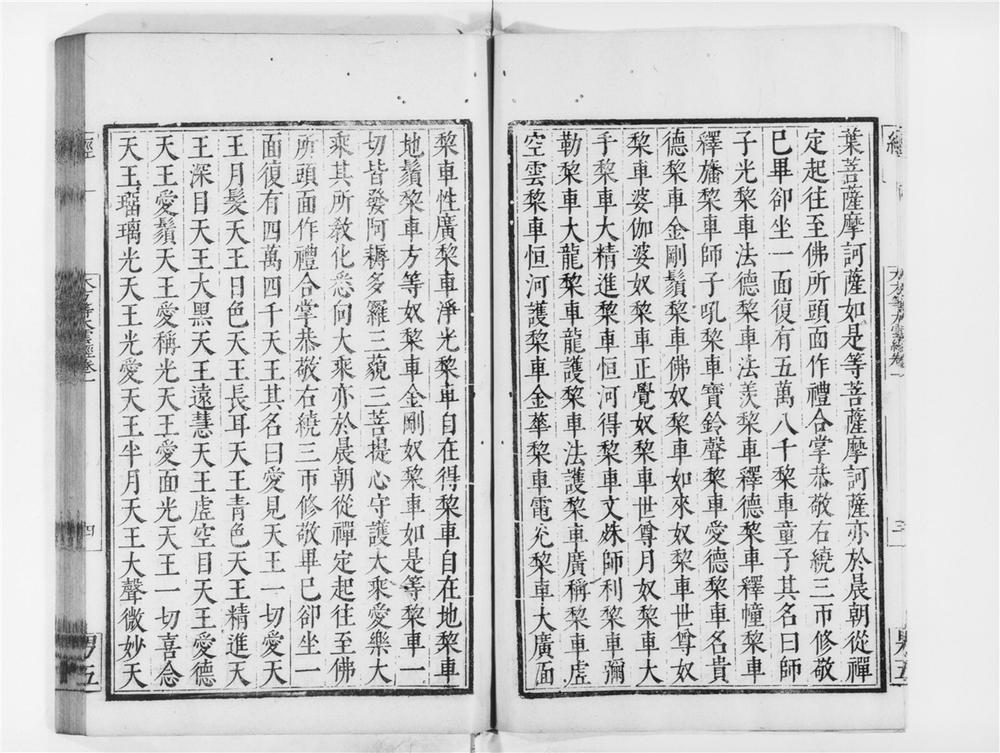 葉菩薩摩訶薩如是等菩薩摩訶薩亦於晨朝從禪
定起往至佛所頭面作禮合掌恭敬右繞三帀修敬
巳畢卻坐一面復有五萬八千黎車童子其名曰師
子光黎車法德黎車法羨黎車釋德黎車釋幢黎車
釋旛黎車師子吼黎車寶鈴聲黎車愛德黎車名貴
德黎車金剛鬚黎車佛奴黎車如來奴黎車世尊奴
黎車婆伽婆奴黎車正覺奴黎車世尊月奴黎車大
手黎車大精進黎車恒河得黎車文姝師利黎車彌
勒黎車大龍黎車龍護黎車法護黎車廣稱黎車虛
空雲黎車恒河護黎車金華黎車電光黎車大廣面
黎車性廣黎車淨光黎車自在得黎車自在地黎車
地鬚黎車方等奴黎車金剛奴黎車如是等黎車一
切皆發阿耨多羅三藐三菩提心守護大乘愛樂大
乘其所敎化悉向大乘亦於晨朝從禪定起往至佛
所頭面作禮合掌恭敬右繞三帀修敬畢巳卻坐一
面復有四萬四千天王其名曰愛見天王一切愛天
王月髮天王日色天王長耳天王青色天王精進天
王深目天王大黑天王遠慧天王虛空目天王愛德
天王愛鬚天王愛稱光天王愛面光天王一切喜念
天王瑠璃光天王光愛天王半月天王大聲微妙天
經
大方等大雲經卷一
四